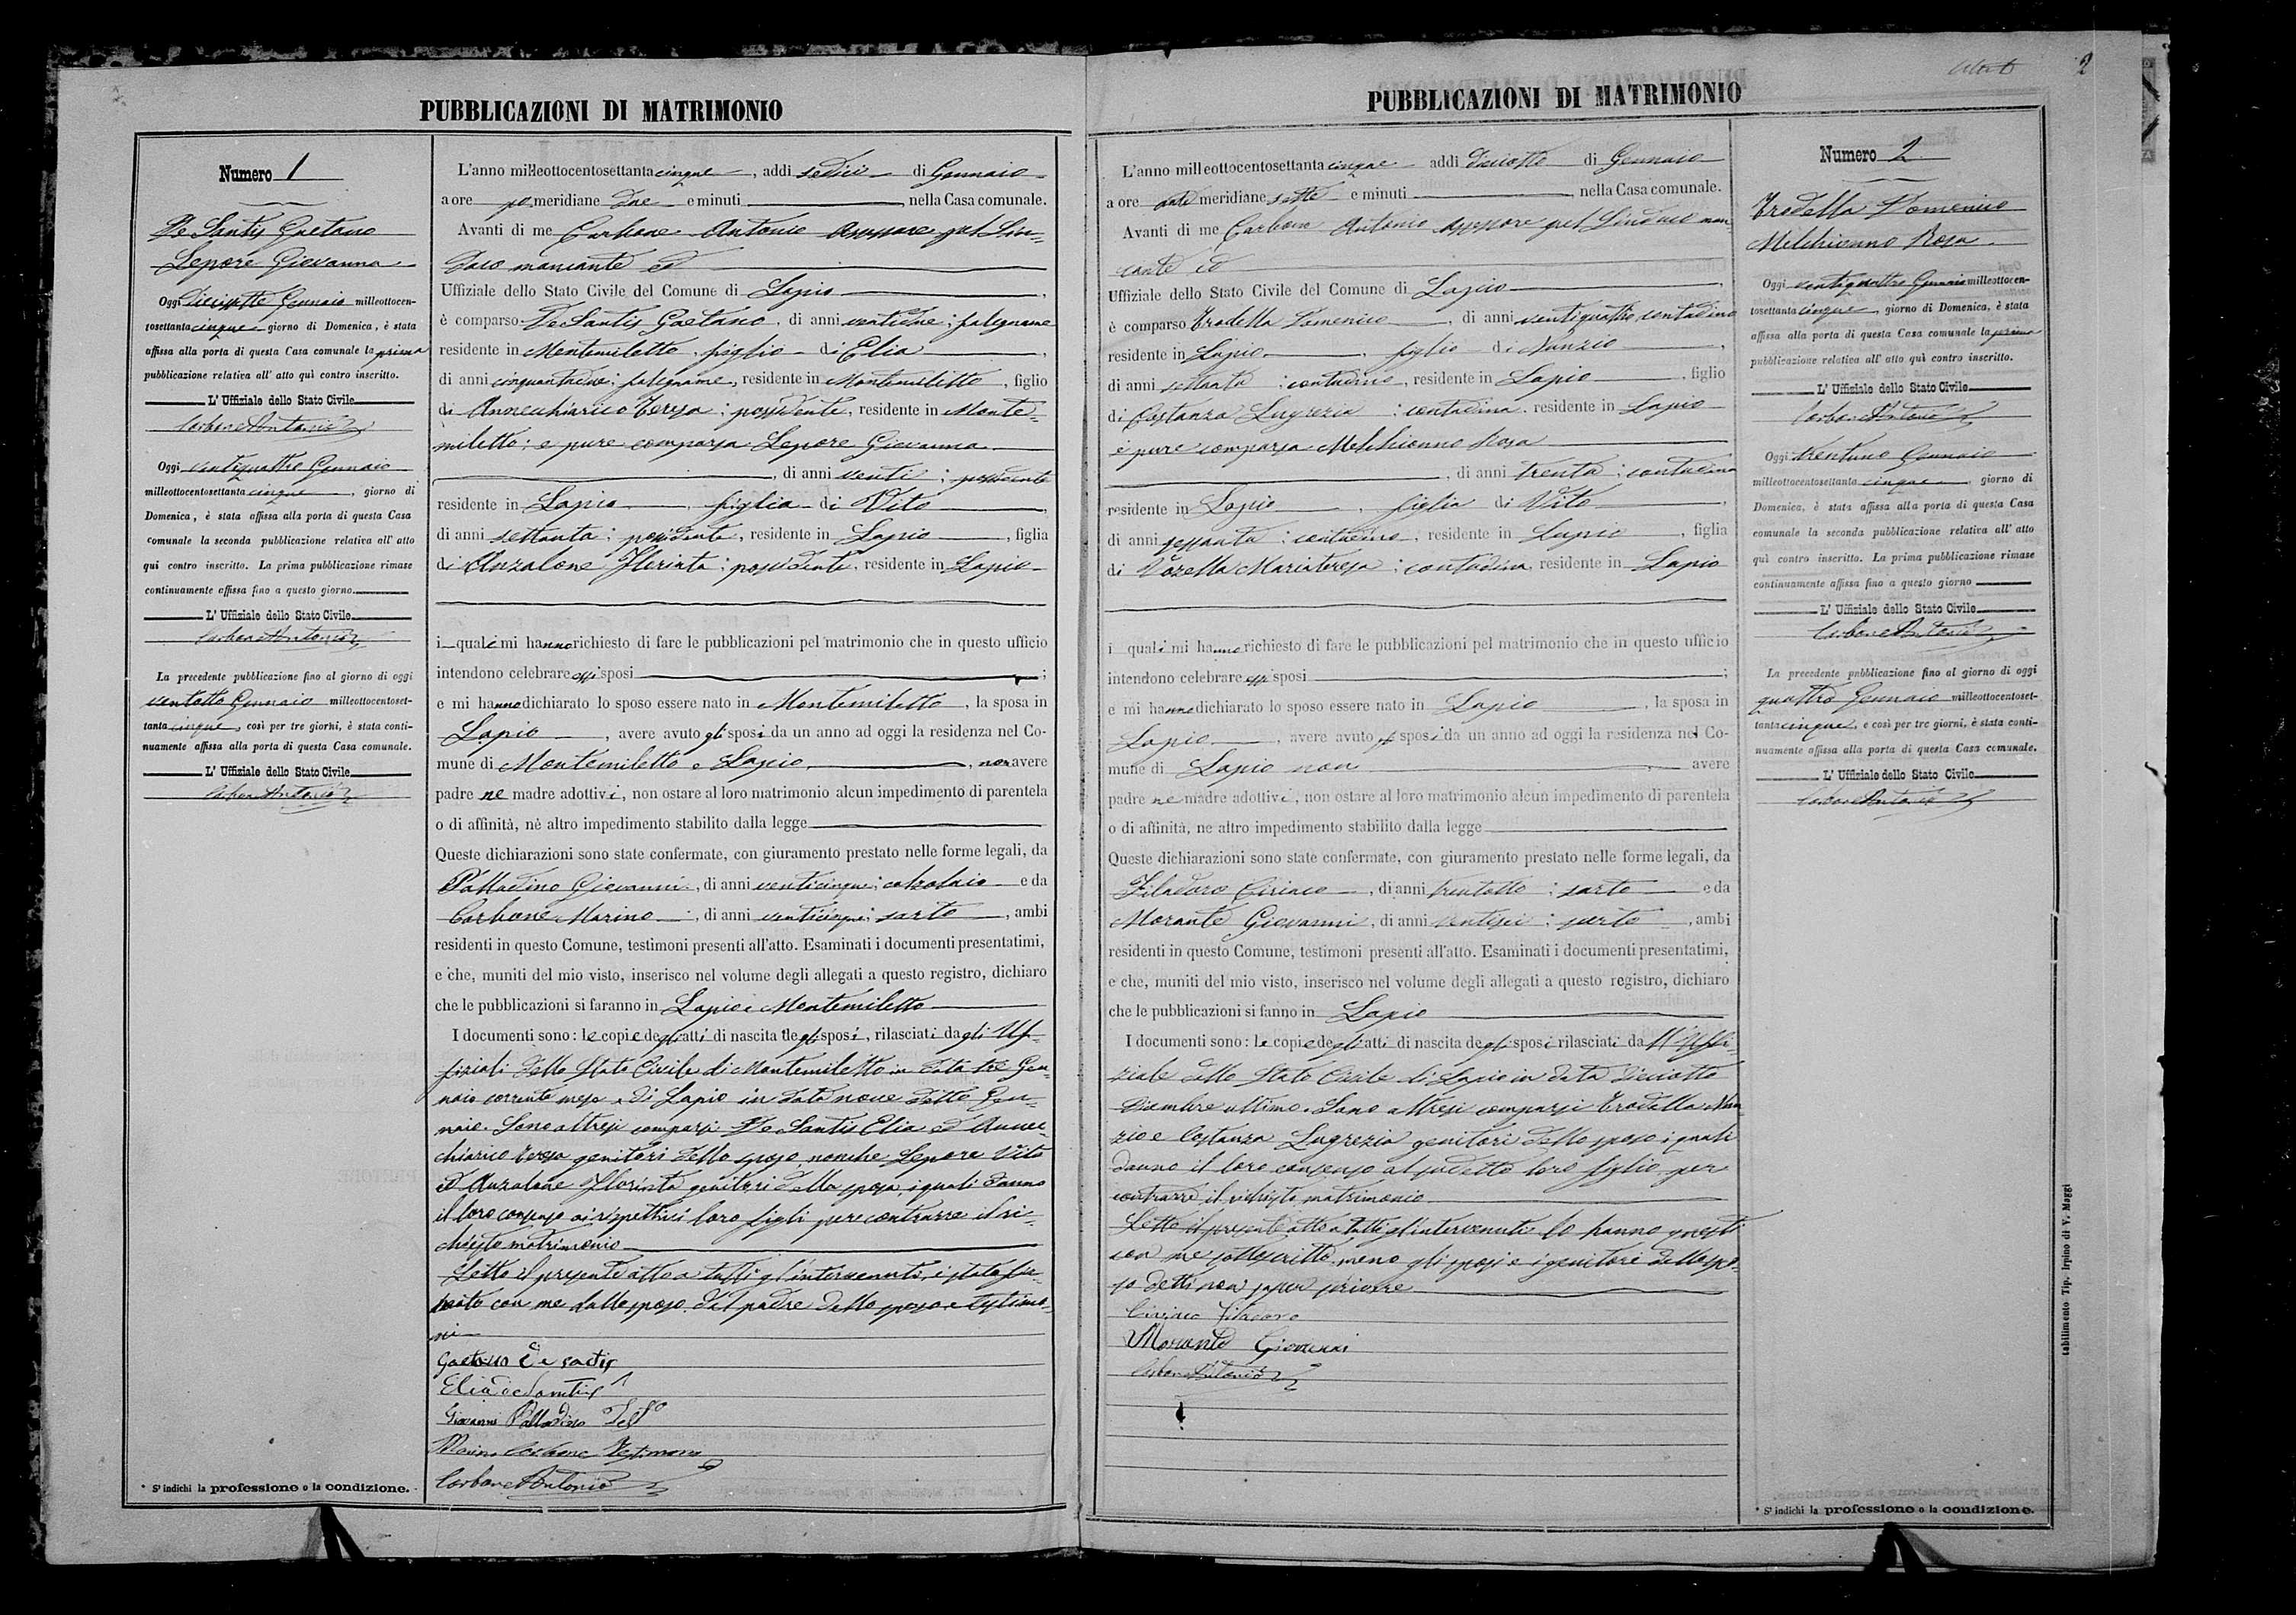 PUBBLICAZIONI DI MATRIMONIO
Numero 1
De Santis Gaetano
Lepore Giovanna
Oggi diciassette Gennaio milleottocen-
tosettantacinque giorno di Domenica, è stata
affissa alla porta di questa Casa comunale la prima
pubblicazione relativa all' atto quì contro inscritto.
L' Uffiziale dello Stato Civile
Carbone Antonio
Oggi ventiquattro Gennaio
milleottocentosettantacinque, giorno di
Domenica, è stata affissa alla porta di questa Casa
comunale la seconda pubblicazione relativa all' atto
qui contro inscritto. La prima pubblicazione rimase
continuamente affissa fino a questo giorno
L' Uffiziale dello Stato Civile
Carbone Antonio
La precedente pubblicazione fino al giorno di oggi
ventotto Gennaio milleottocentoset-
tantacinque, così per tre giorni, è stata conti-
nuamente affissa alla porta di questa Casa comunale.
L' Uffiziale dello Stato Civile
Carbone Antonio
* S' indichi la professione o la condizione.
L'anno milleottocentosettantacinque, addi sedici di Gennaio
a ore po meridiane due e minuti, nella Casa comunale.
Avanti di me Carbone Antonio Assessore pel Sin-
daco mancante ed
Uffiziale dello Stato Civile del Comune di Lapio,
è comparso De Santis Gaetano, di anni ventidue; falegname
residente in Montemiletto, figlio di Elia,
di anni cinquantadue; falegname, residente in Montemiletto, figlio
di Teresa; possidente, residente in Monte-
miletto; e pure comparsa Lepore Giovanna
, di anni venti; possidente
residente in Lapio, figlia di Vito,
di anni settanta; possidente, residente in Lapio, figlia
di Anzalone Florinta; possidente, residente in Lapio
i quali mi hanno richiesto di fare le pubblicazioni pel matrimonio che in questo ufficio
intendono celebrare essi sposi;
e mi hanno dichiarato lo sposo essere nato in Montemiletto, la sposa in
Lapio, avere avuto gli sposi da un anno ad oggi la residenza nel Co-
mune di Montemiletto e Lapio, non avere
padre ne madre adottivi, non ostare al loro matrimonio alcun impedimento di parentela
o di affinità, nè altro impedimento stabilito dalla legge
Queste dichiarazioni sono state confermate, con giuramento prestato nelle forme legali, da
Palladino Giovanni, di anni venticinque; calzolaio e da
Carbone Marino, di anni venticinque; sarto, ambi
residenti in questo Comune, testimoni presenti all'atto. Esaminati i documenti presentatimi,
e che, muniti del mio visto, inserisco nel volume degli allegati a questo registro, dichiaro
che le pubblicazioni si faranno in Lapio e Montemiletto
I documenti sono: le copie degli atti di nascita degli sposi, rilasciati dagli Uf-
fiziali dello Stato Civile di Montemiletto in data tre Gen-
naio corrente mese e di Lapio in data nove detto Gen-
naio. Sono altresi comparsi De Santis Elia ed
Teresa genitori dello sposo, nonche Lepore Vito
ed Anzalone Florinta genitori della sposa, i quali danno
il loro consenso ai rispettivi loro figli per contrarre il ri-
chiesto matrimonio
Letto il presente atto a tutti gl'intervenuti, è stato fir-
mato con me dallo sposo, dal padre dello sposo e testimo-
ni
Gaetano De Santis
Elia de Santis
Giovanni Palladino Test°
Marino Carbone Testimone
Carbone Antonio
PUBBLICAZIONI DI MATRIMONIO
2
L'anno milleottocentosettantacinque addi diciotto di Gennaio
a ore anti meridiane sette e minuti, nella Casa comunale.
Avanti di me Carbone Antonio Assessore pel Sindaco man-
cante ed
Uffiziale dello Stato Civile del Comune di Lapio,
è comparso Trodella Domenico, di anni ventiquattro contadino
residente in Lapio, figlio di Nunzio,
di anni settanta; contadino, residente in Lapio, figlio
di Costanza Lugrezia; contadina, residente in Lapio
è pure comparsa Melchionno Rosa
, di anni trenta; contadina
residente in Lapio, figlia di Vito,
di anni sessanta; contadino, residente in Lapio, figlia
di Mariateresa; contadina, residente in Lapio
i quali mi hanno richiesto di fare le pubblicazioni pel matrimonio che in questo ufficio
intendono celebrare essi sposi;
e mi hanno dichiarato lo sposo essere nato in Lapio, la sposa in
Lapio, avere avuto gli sposi da un anno ad oggi la residenza nel Co-
mune di Lapio non, avere
padre ne madre adottivi, non ostare al loro matrimonio alcun impedimento di parentela
o di affinità, ne altro impedimento stabilito dalla legge
Queste dichiarazioni sono state confermate, con giuramento prestato nelle forme legali, da
Filadoro Ciriaco, di anni trentotto; sarto e da
Morante Giovanni, di anni ventisei; sarto, ambi
residenti in questo Comune, testimoni presenti all'atto. Esaminati i documenti presentatimi,
e che, muniti del mio visto, inserisco nel volume degli allegati a questo registro, dichiaro
che le pubblicazioni si fanno in Lapio
I documenti sono: le copie degli atti di nascita degli sposi rilasciati dall'Uffi-
ziale dello Stato Civile di Lapio in data diciotto
Dicembre ultimo. Sono altresi comparsi Trodella Nun-
zio e Costanza Lugrezia genitori dello sposo i quali
danno il loro consenso al sudetto loro figlio per
contrarre il richiesto matrimonio
Letto il presente atto a tutti gl'intervenuti lo hanno questi
con me sottoscritto meno gli sposi e i genitori dello spo-
so detti non saper scrivere
Ciriaco Filadoro
Morante Giovanni
Carbone Antonio
Numero 2
Trodella Domenico
Melchionno Rosa
Oggi ventiquattro Gennaio milleottocen-
tosettantacinque, giorno di Domenica, è stata
affissa alla porta di questa Casa comunale la prima
pubblicazione relativa all' atto quì contro inscritto.
L' Uffiziale dello Stato Civile
Carbone Antonio
Oggi trentuno Gennaio
milleottocentosettantacinque, giorno di
Domenica, è stata affissa alla porta di questa Casa
comunale la seconda pubblicazione relativa all' atto
quì contro inscritto. La prima pubblicazione rimase
continuamente affissa fino a questo giorno
L' Uffiziale dello Stato Civile
Carbone Antonio
La precedente pubblicazione fino al giorno di oggi
quattro Gennaio milleottocentoset-
tantacinque, e così per tre giorni, è stata conti-
nuamente affissa alla porta di questa Casa comunale.
L' Uffiziale dello Stato Civile
Carbone Antonio
* S' indichi la professione o la condizione.
tabilimento Tip. Irpino di V. Maggi